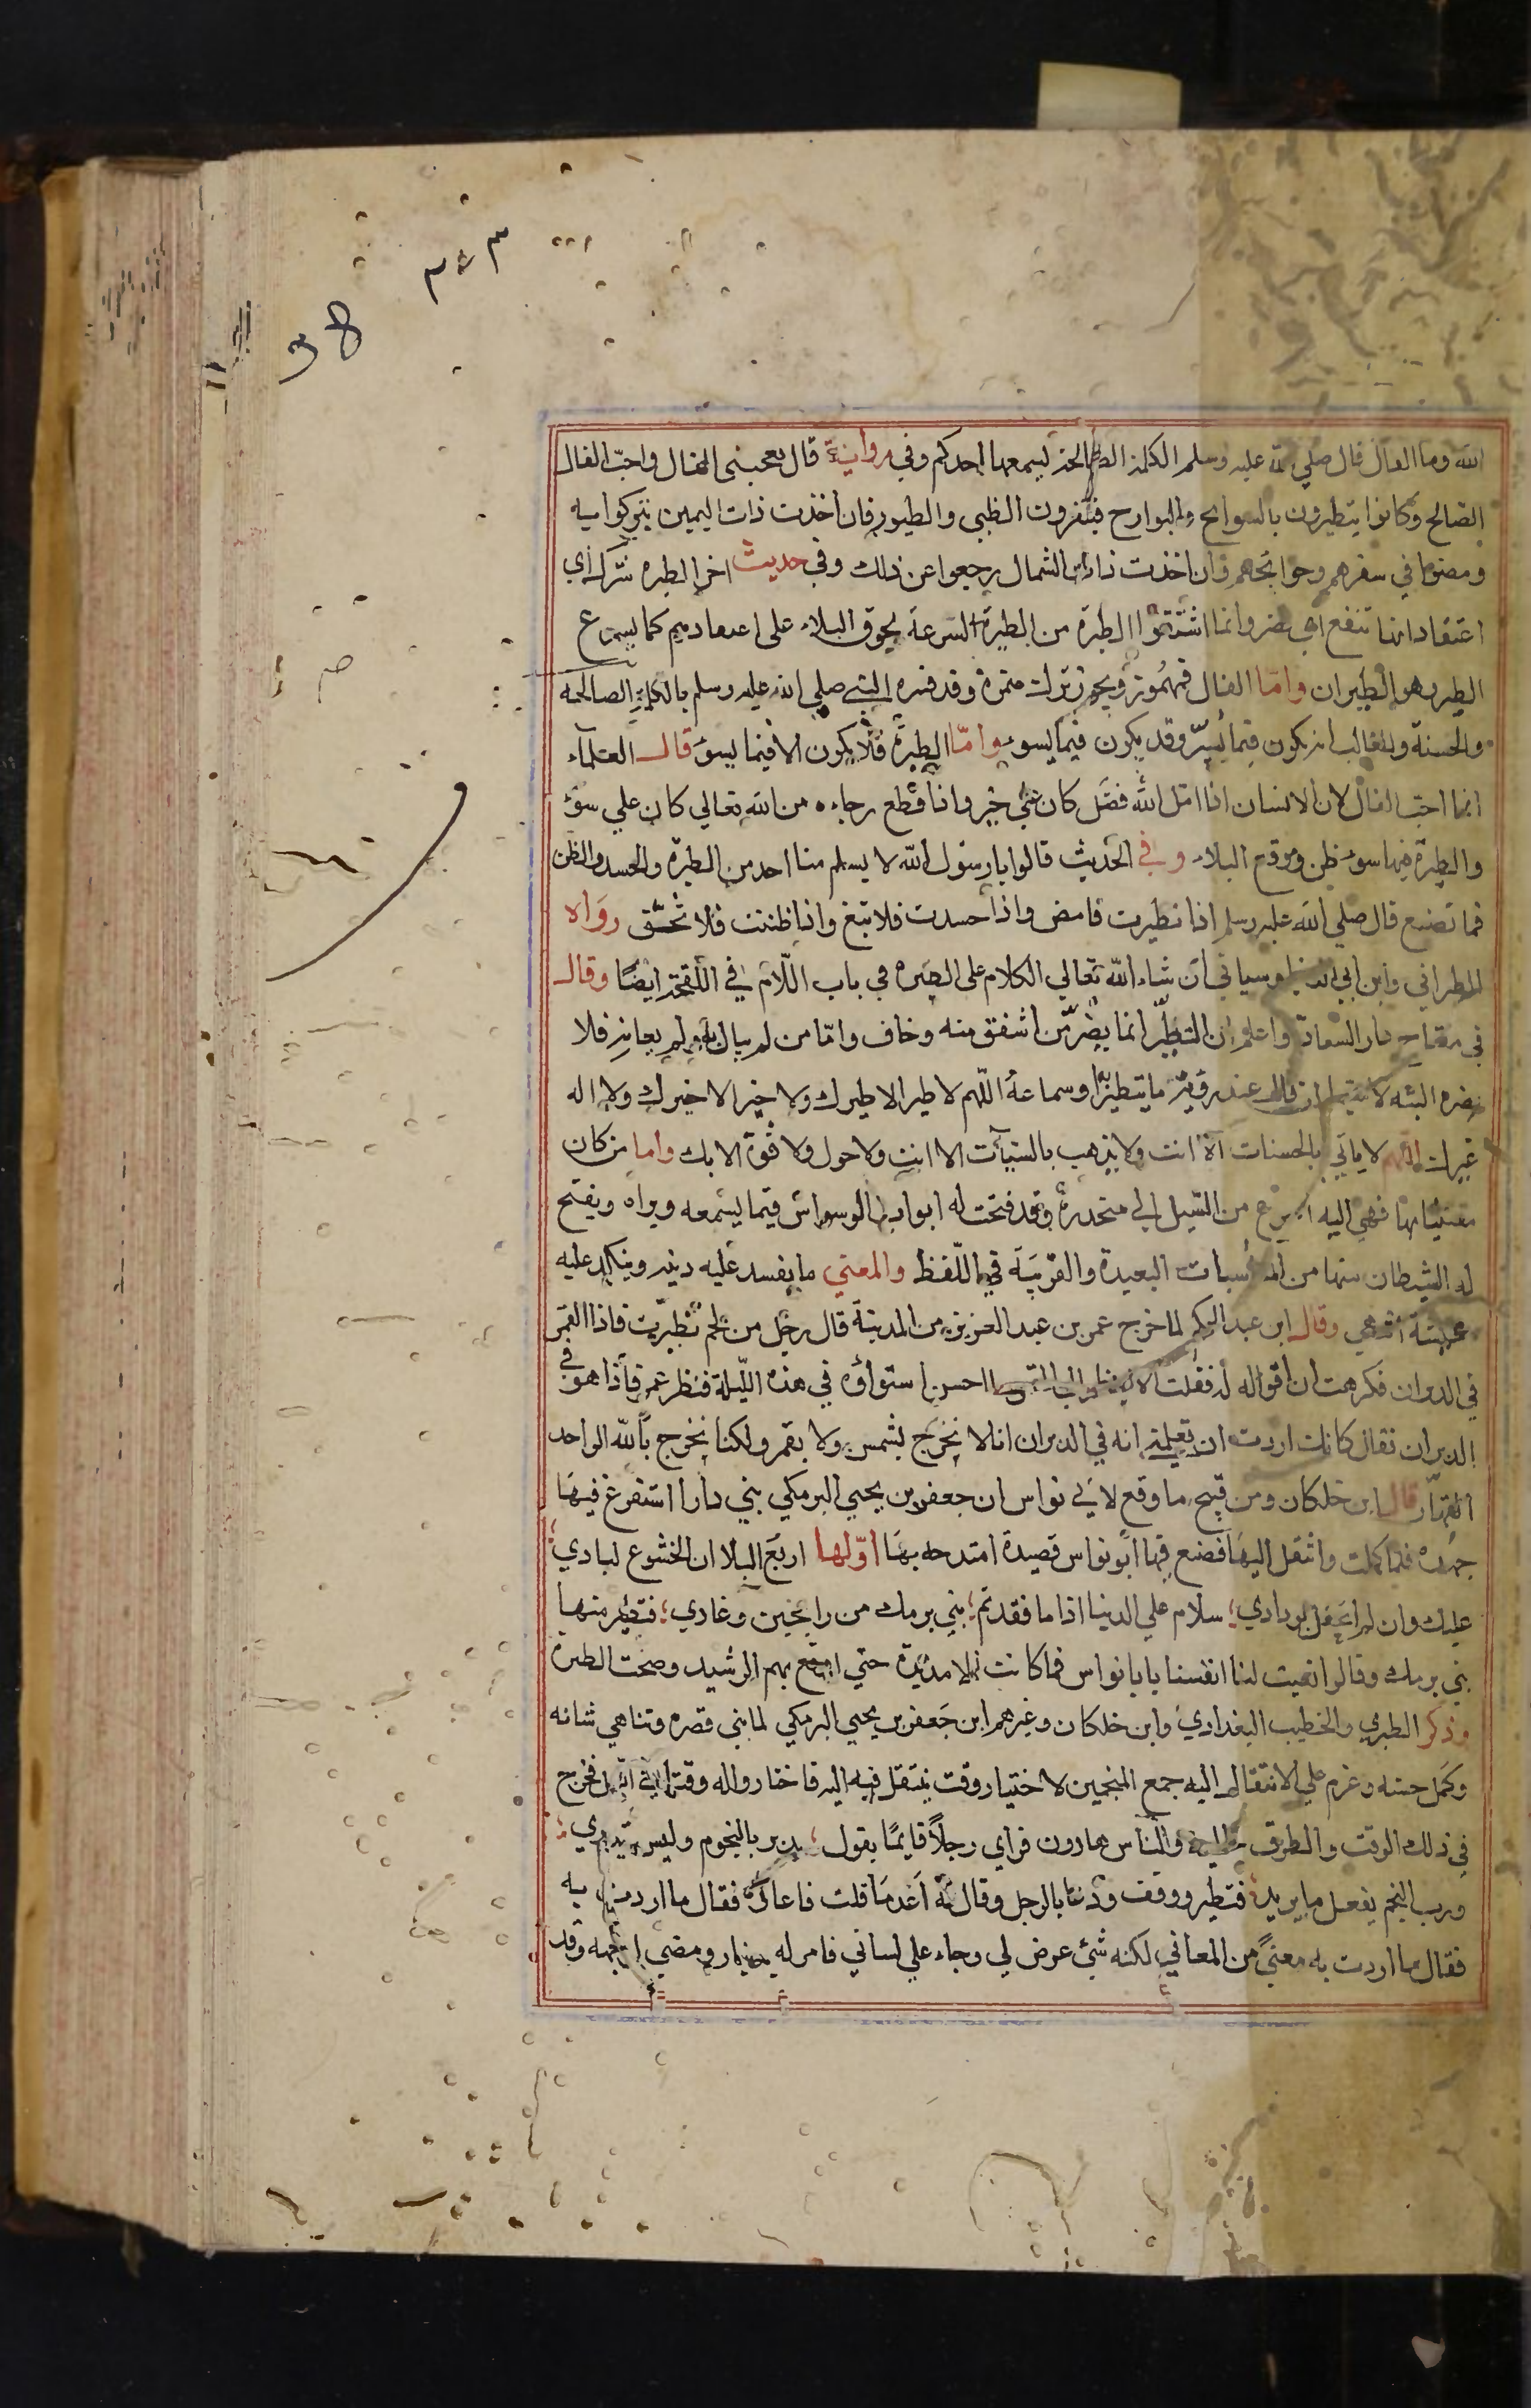 ٣٤٣
38
الله وما الفال قال صلى الله عليه وسلم الكلمة الصالحة يسمعها احدكم وفي رواية قال يعجبني الفال واحب الفال
الصالح وكانوا يتطيرون بالسوانح والبوارح فينفرون الظبى والطيور فان اخذت ذات اليمين تبركوا به
ومضوا في سفرهم وحوائجهم وان اخذت ذات الشمال رجعوا عن ذلك وفي حديث اخر الطيرة شرك اي
اعتقاد انها تنفع او تضر وانما اشتقوا الطيرة من الطيرة لسرعة لحوق البلاء على اعتقادهم كما يسرع
الطير وهو الطيران واما الفال فمهموز ويجوز ترك همزه وقد فسره النبي صلي الله عليه وسلم بالكلمة الصالحه
والحسنة والغالب ان يكون فيما يسر وقد يكون فيما يسوء واما الطيرة فلا يكون الا فيما يسوء قال العلماء
انما احب الفال لان الانسان اذا امل الله فضل كان على خير واذا قطع رجاءه من الله تعالي كان علي سوء
والطيرة فيها سوء ظن وتوقع البلاء وفي الحديث قالوا يا رسول الله لا يسلم منا احد من الطيرة والحسد والظن
فما تصنع قال صلي الله عليه وسلم اذا تطيرت فامض واذا حسدت فلا تبغ واذا ظننت فلا تحقق رواه
الطبراني وابن ابي الدنيا وسياتي ان شاء الله تعالي الكلام على الطيره في باب اللام في اللقحة ايضا وقال
في مفتاح دار السعادة واعلم ان التطير انما يضر من اشفق منه وخاف واما من لم يبال به ولم يعبا به فلا
يضره البته لا سيما ان قال عند رؤية ما يتطير به او سماعه اللهم لا طير الا طيرك ولا خير الا خيرك ولا اله
غيرك اللهم لا ياتي بالحسنات الا انت ولا يذهب بالسيئات الا انت ولا حول ولا قوة الا بك واما من كان
معتنيا بها فهي اليه اسرع من السيل الي منحدره وقد فتحت له ابواب الوسواس فيما يسمعه ويراه ويفتح
له الشيطان منها من المناسبات البعيدة والقريبة في اللفظ والمعني ما يفسد عليه دينه وينكد عليه
عيشه انتهي وقال ابن عبد الحكم لما خرج عمر بن عبد العزيز من المدينة قال رجل من لخم تطيرت فاذا القمر
في الدبران فكرهت ان اقوله له فقلت الا تنظر الي القمر ما احسن استواؤه في هذه الليلة فنظر عمر فاذا هو في
الدبران فقال كانك اردت ان تعلمني انه في الدبران انا لا نخرج بشمس ولا بقمر ولكنا نخرج بالله الواحد
القهار قال ابن خلكان ومن قبيح ما وقع لابي نواس ان جعفر بن يحيي البرمكي بني دارا استفرغ فيها
جهده فلما كملت وانتقل اليها فصنع فيها ابو نواس قصيدة امتدحه بها اولها اربع البلا ان الخشوع لبادي
عليك وان لم اخنك ودادي سلام علي الدنيا اذا ما فقدتم بني برمك من رايحين وغادي فتطير منها
بني برمك وقالوا نعيت لنا انفسنا يا با نواس فما كانت الا مديدة حتي اوقع بهم الرشيد وصحت الطيرة
وذكر الطبري والخطيب البغدادي وابن خلكان وغيرهم ابن جعفر بن يحيي البرمكي لما بني قصره وتناهي شانه
وكمل حسنه وعزم علي الانتقال اليه جمع المنجمين لاختيار وقت ينتقل فيه اليه فاختاروا له وقتا في الليل فخرج
في ذلك الوقت والطرق خالية والناس هادون فراي رجلا قايما يقول يدبر بالنجوم وليس يدري
ورب النجم يفعل ما يريد فتطير ووقف ودعا بالرجل وقال له اعد ما قلت فاعاده فقال ما اردت به
فقال ما اردت به معني من المعاني لكنه شئ عرض لي وجاء علي لساني فامر له بدينار ومضي لوجهه وقد